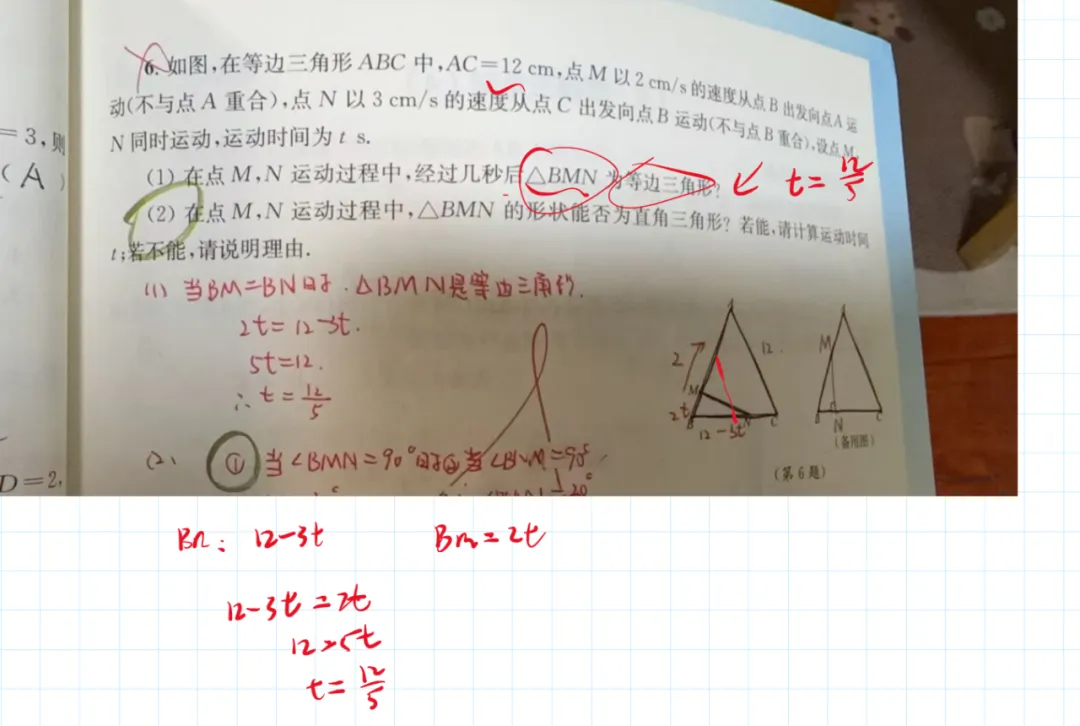 6. 如图,在等边三角形 ABC 中,AC=12 cm,点 M 以 2 cm/s 的速度从点 B 出发向点 A 运
动(不与点 A 重合),点 N 以 3 cm/s 的速度从点 C 出发向点 B 运动(不与点 B 重合),设点 M,
N 同时运动,运动时间为 t s.
=3,则
(A)
(1) 在点 M,N 运动过程中,经过几秒后△BMN 为等边三角形?
t=12/5
(2) 在点 M,N 运动过程中,△BMN 的形状能否为直角三角形?若能,请计算运动时间
t;若不能,请说明理由.
(1) 当BM=BN时.△BMN是等边三角形.
2t=12-3t.
5t=12.
∴t=12/5
2 12 M 2t B 12-3t N C
M B N C
(备用图)
(第 6 题)
(2) ① 当∠BMN=90°时 ② 当∠BNM=90°
D=2,
BN: 12-3t Bm=2t
12-3t=2t
12=5t
t=12/5